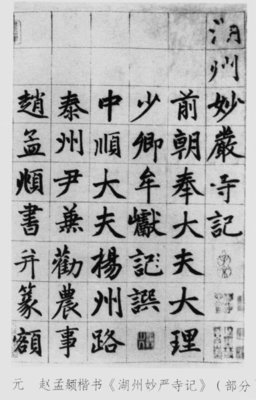 湖州妙嚴寺記
前朝奉大夫大理
少卿牟巘記譔
中順大夫楊州路
泰州尹兼勸農事
趙孟頫書并篆額
元　赵孟頫楷书《湖州妙严寺记》(部分)